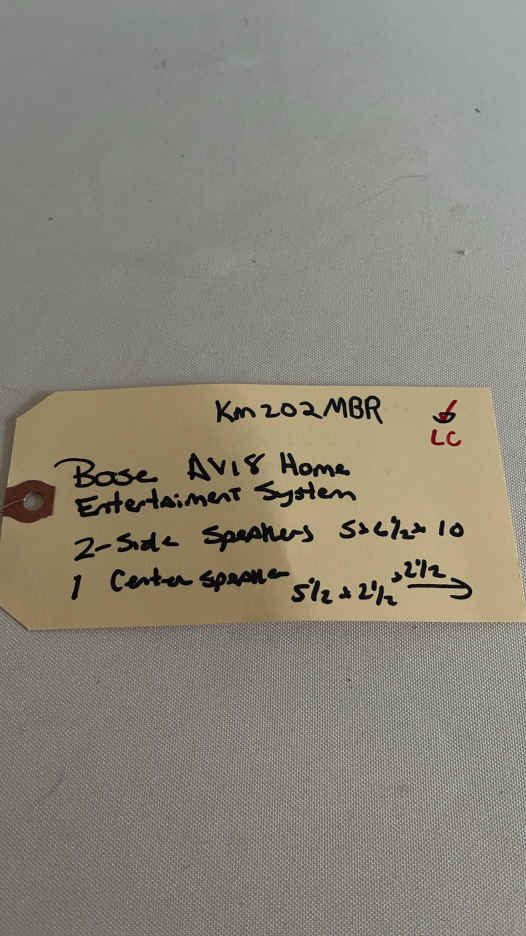 Km202MBR
LC
Bose AV18 Home
Entertaiment System
2-Side Speakers 5x6½x10
1 Center Speaker 5½x2½x2½ →